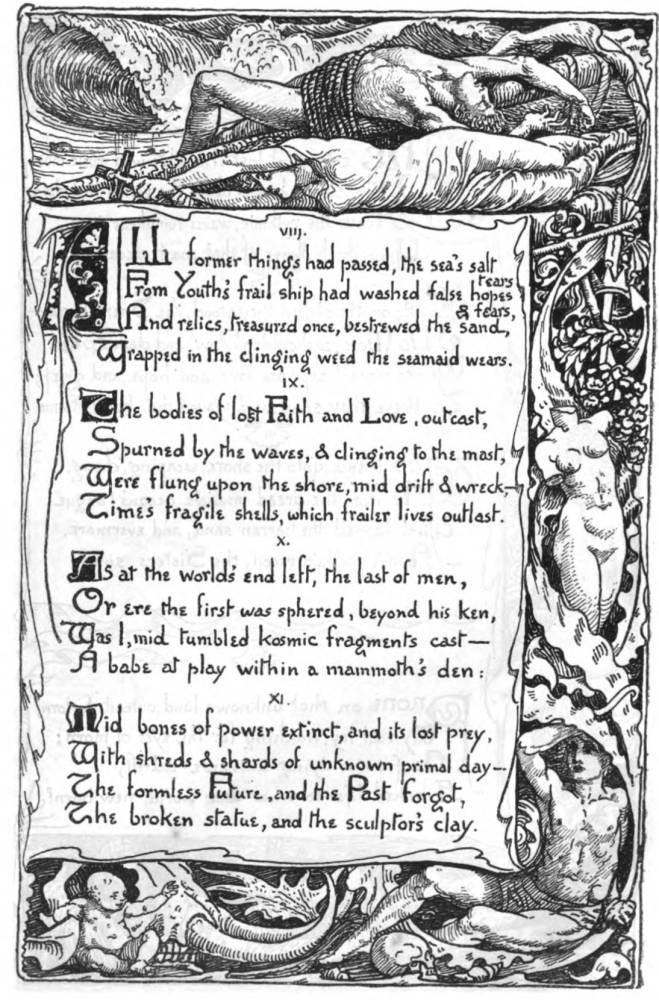 VIII.
All former things had passed, the sea's salt tears
From Youth's frail ship had washed false hopes & fears,
And relics, treasured once, bestrewed the sand,
Wrapped in the clinging weed the seamaid wears.
IX.
The bodies of lost Faith and Love, outcast,
Spurned by the waves, & clinging to the mast,
Were flung upon the shore, mid drift & wreck,—
Time's fragile shells, which frailer lives outlast.
X.
As at the world's end left, the last of men,
Or ere the first was sphered, beyond his ken,
Was I, mid tumbled kosmic fragments cast—
A babe at play within a mammoth's den:
XI.
Mid bones of power extinct, and its lost prey,
With shreds & shards of unknown primal day—
The formless Future, and the Past forgot,
The broken statue, and the sculptor's clay.